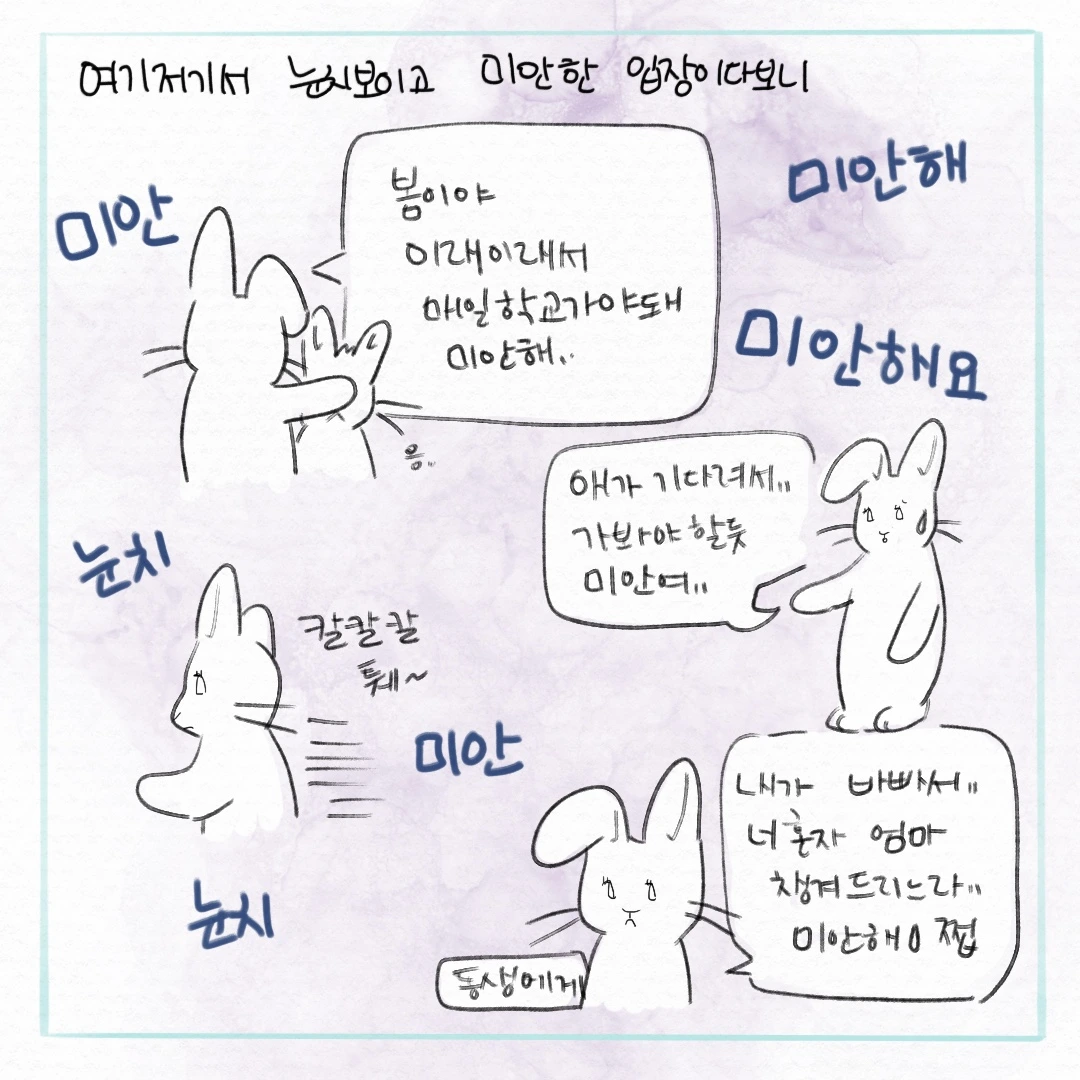 여기저기서 눈치보이고 미안한 입장이다보니
미안
봄이야
이래이래서
매일 학교가야돼
미안해..
응..
미안해
미안해요
애가 기다려서,,
가봐야 할듯
미안여,,
눈치
칼칼칼
퉤~
미안
눈치
내가 바빠서,,
너 혼자 엄마
챙겨드리느라,,
미안해 쩝
동생에게